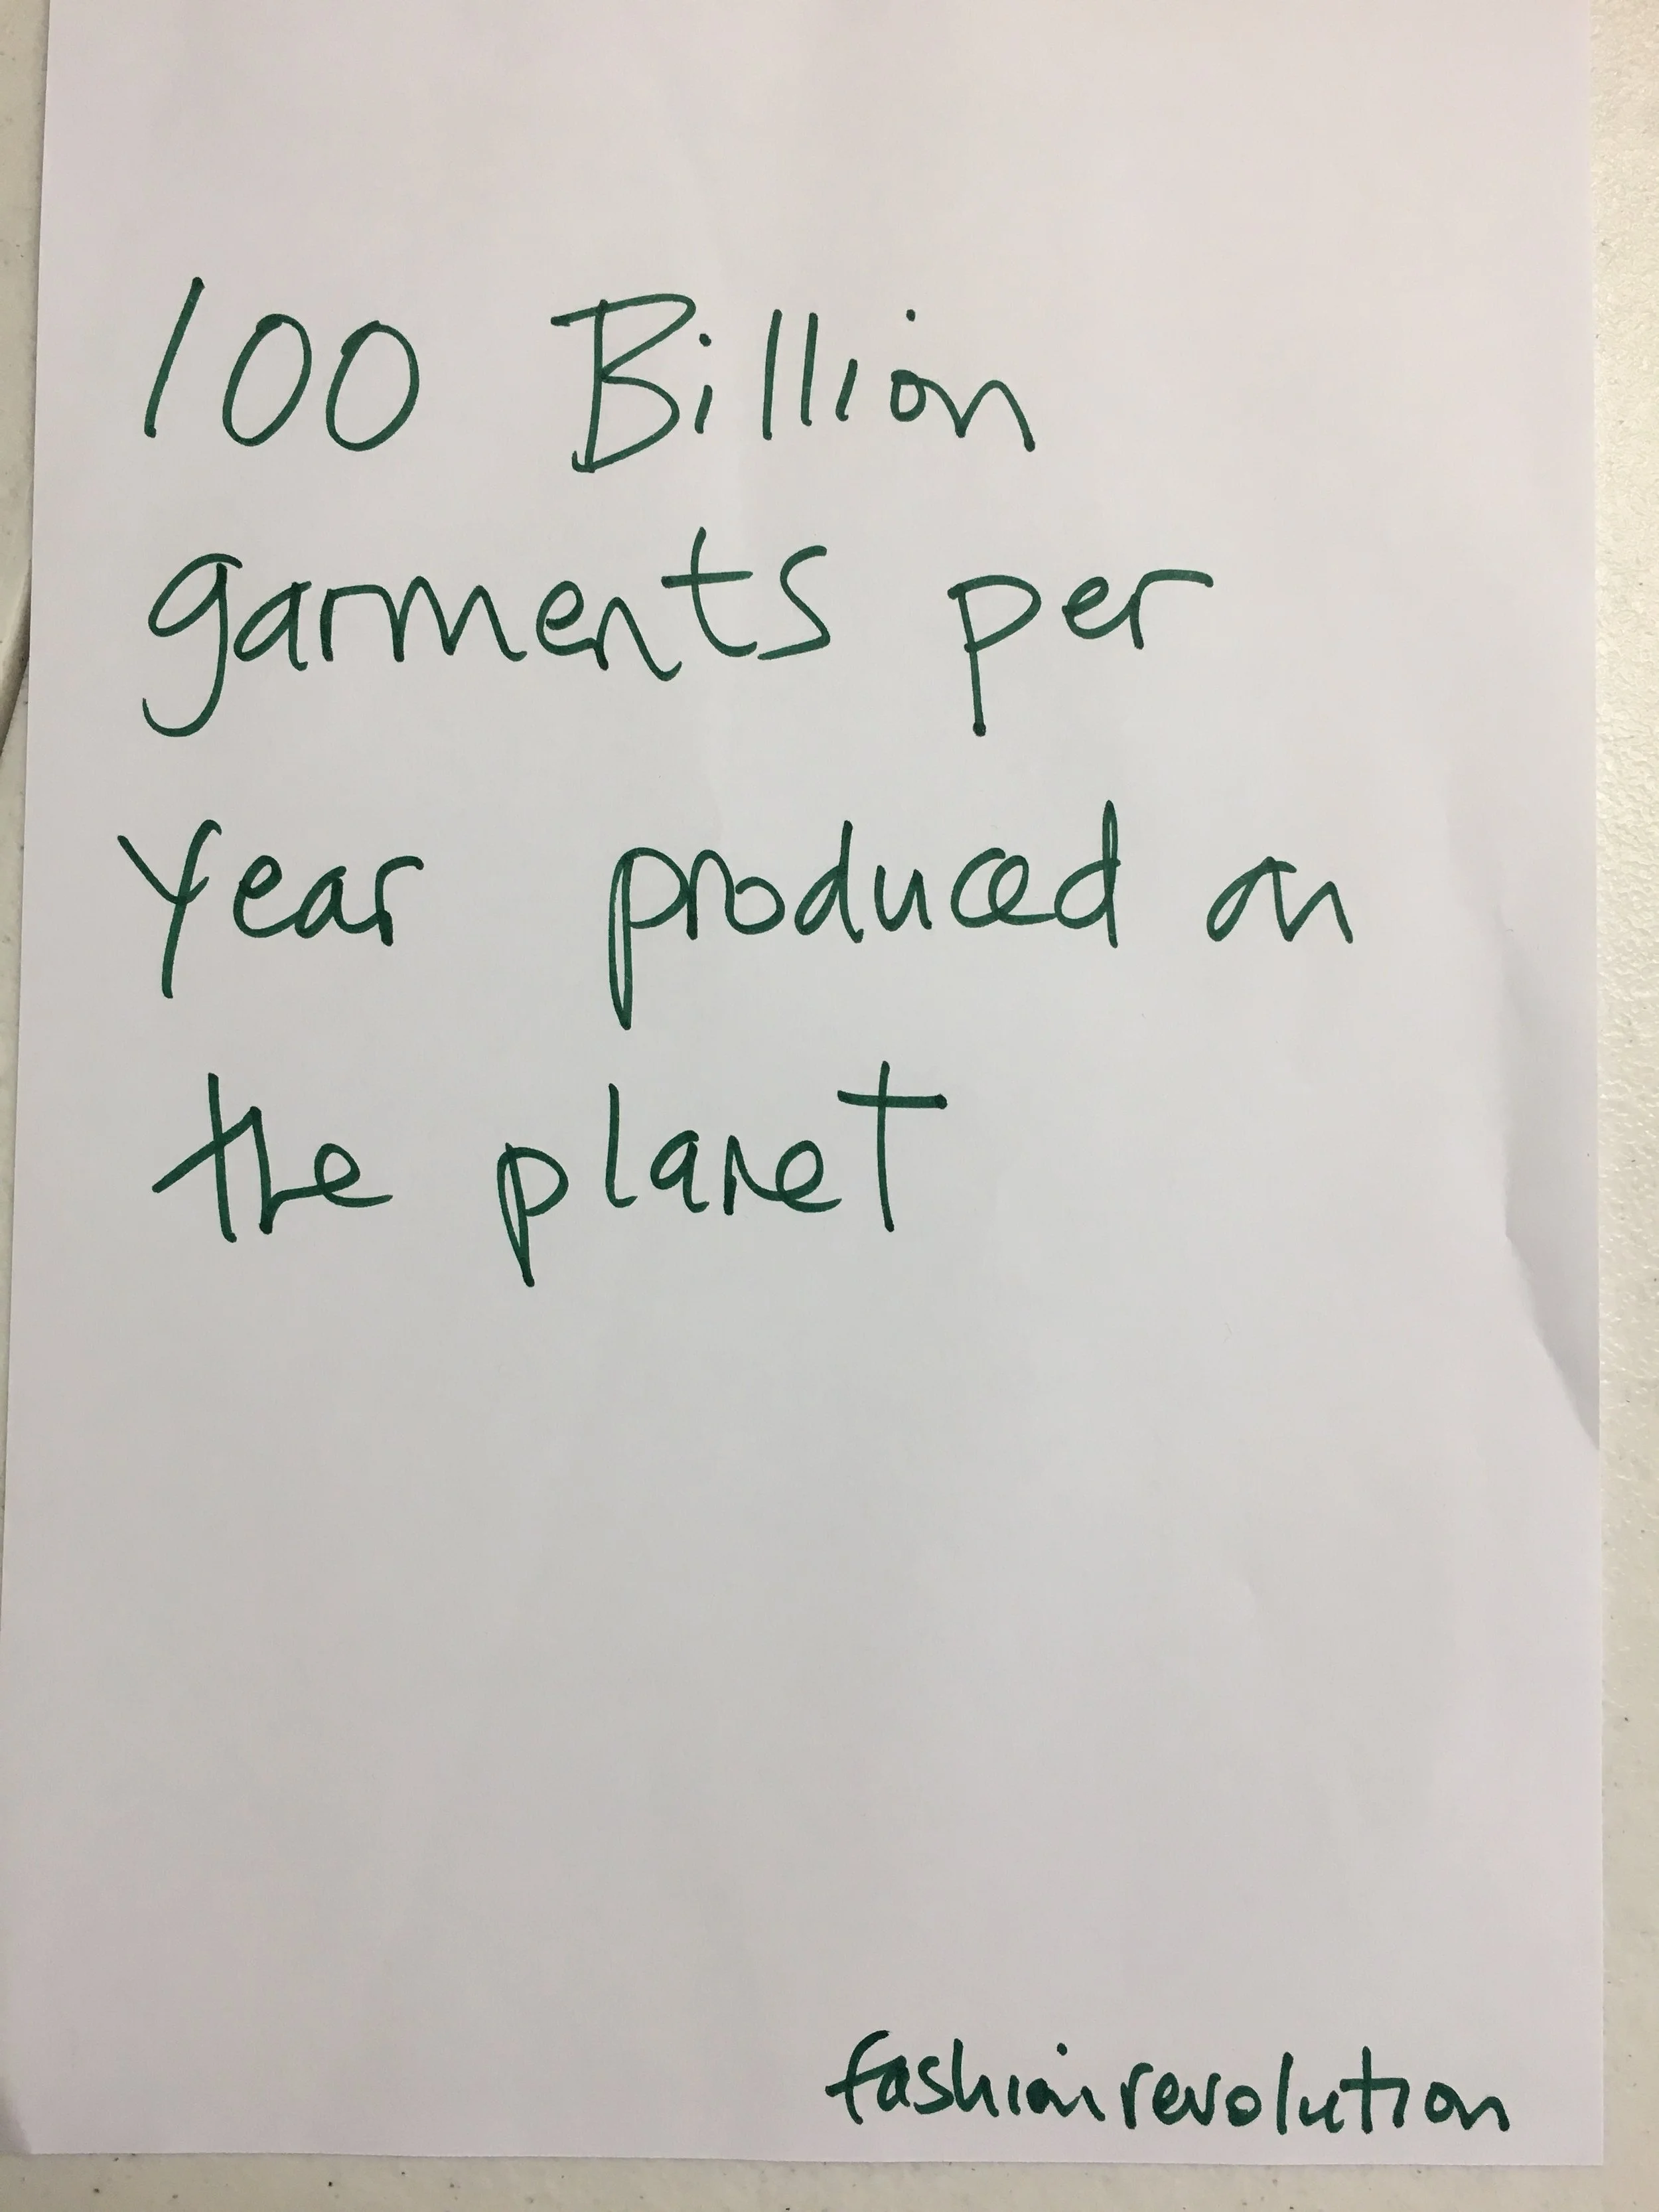 100 Billion
garments per
year produced on
the planet
fashion revolution